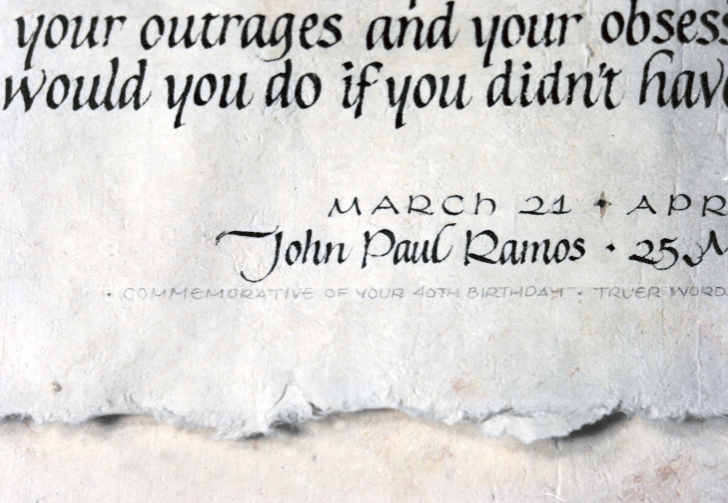 your outrages and your obsess
would you do if you didn't have
MARCh 21 + APR
John Paul Ramos · 25 M
· COMMEMORATIVE OF YOUR 40TH BIRTHDAY · TRUER WORD